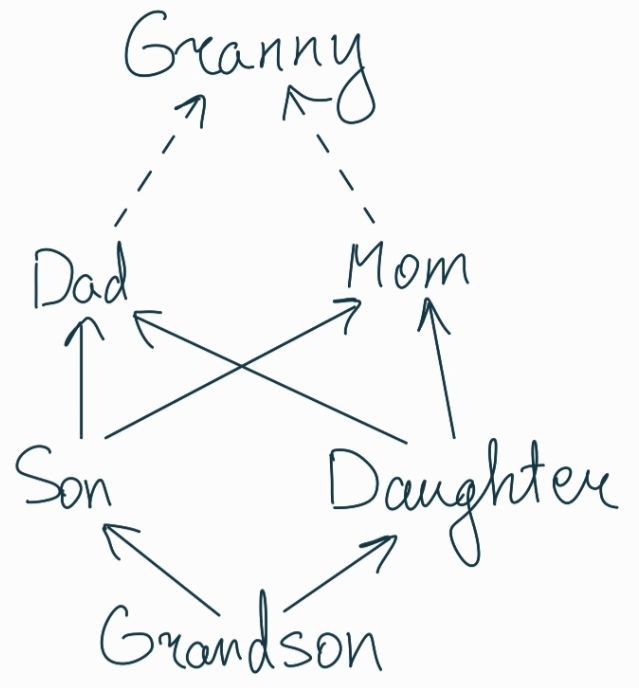 Granny
Dad Mom
Son Daughter
Grandson